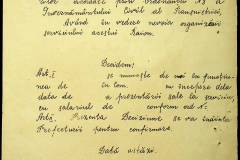 celor acordate prin Ordonanța No 8 a
Guvernământului Civil al Transnistriei,
Având în vedere nevoia organizării
serviciului acestui Raion.
Decidem:
Art. I se numește de noi cu funcțiu-
nea de cu tem. cu începere dela
data de a prezentării sale la serviciu,
cu salariul de conform ord N:
Art. Prezenta Deciziune se va înainta
Prefecturii pentru confirmare.
Dată astăzi